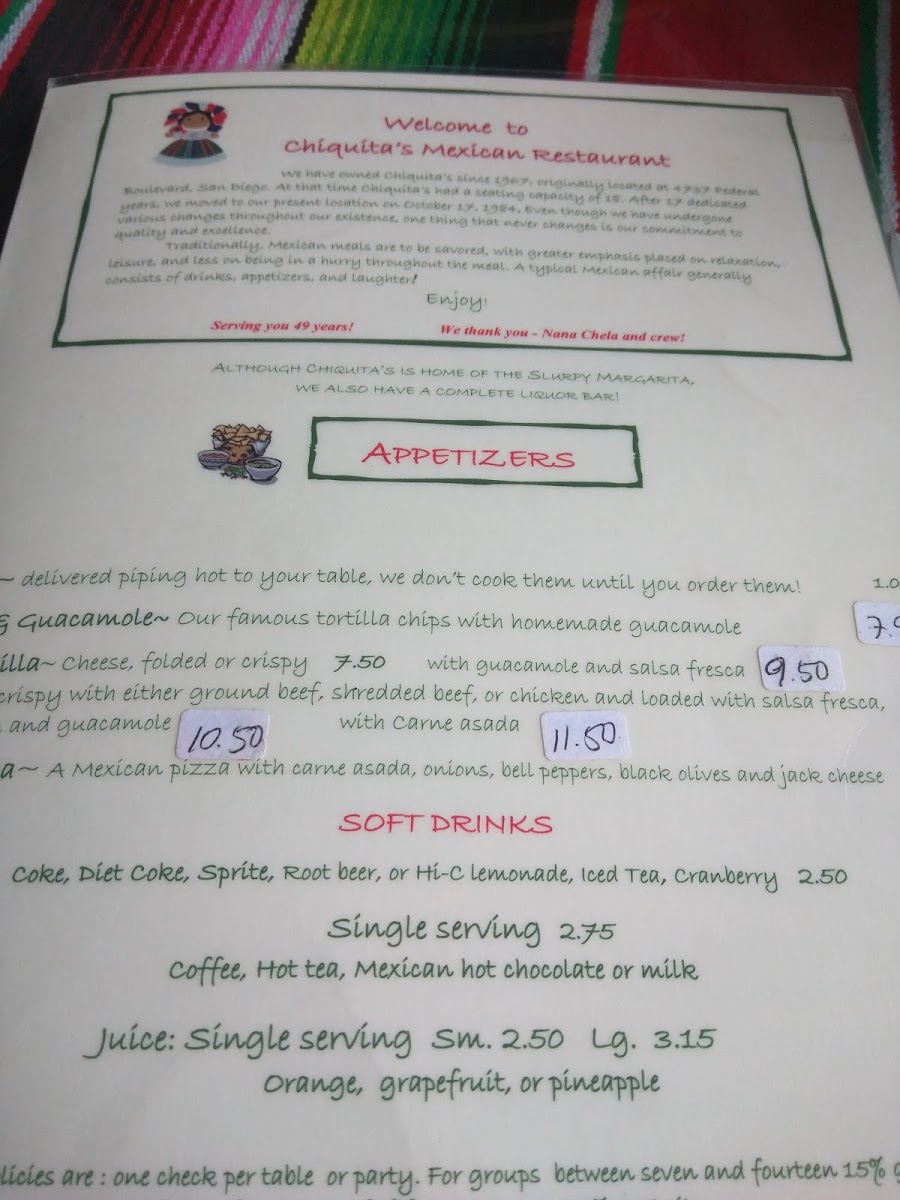 Welcome to
Chiquita's Mexican Restaurant
We have owned Chiquita's since 1967, originally located at 4737 Federal
Boulevard, San Diego. At that time Chiquita's had a seating capacity of 18. After 17 dedicated
years, we moved to our present location on October 17, 1984. Even though we have undergone
various changes throughout our existence, one thing that never changes is our commitment to
quality and excellence.
Traditionally, Mexican meals are to be savored, with greater emphasis placed on relaxation,
leisure, and less on being in a hurry throughout the meal. A typical Mexican affair generally
consists of drinks, appetizers, and laughter!
Enjoy!
Serving you 49 years! We thank you - Nana Chela and crew!
ALTHOUGH CHIQUITA'S IS HOME OF THE SLURPY MARGARITA,
WE ALSO HAVE A COMPLETE LIQUOR BAR!
APPETIZERS
~ delivered piping hot to your table, we don't cook them until you order them! 1.0
& Guacamole~ Our famous tortilla chips with homemade guacamole 7.9
illa~ Cheese, folded or crispy 7.50 with guacamole and salsa fresca 9.50
crispy with either ground beef, shredded beef, or chicken and loaded with salsa fresca,
and guacamole 10.50 with Carne asada 11.50
a~ A Mexican pizza with carne asada, onions, bell peppers, black olives and jack cheese
SOFT DRINKS
Coke, Diet Coke, Sprite, Root beer, or Hi-C lemonade, Iced Tea, Cranberry 2.50
Single serving 2.75
Coffee, Hot tea, Mexican hot chocolate or milk
Juice: Single serving Sm. 2.50 Lg. 3.15
Orange, grapefruit, or pineapple
licies are : one check per table or party. For groups between seven and fourteen 15% g